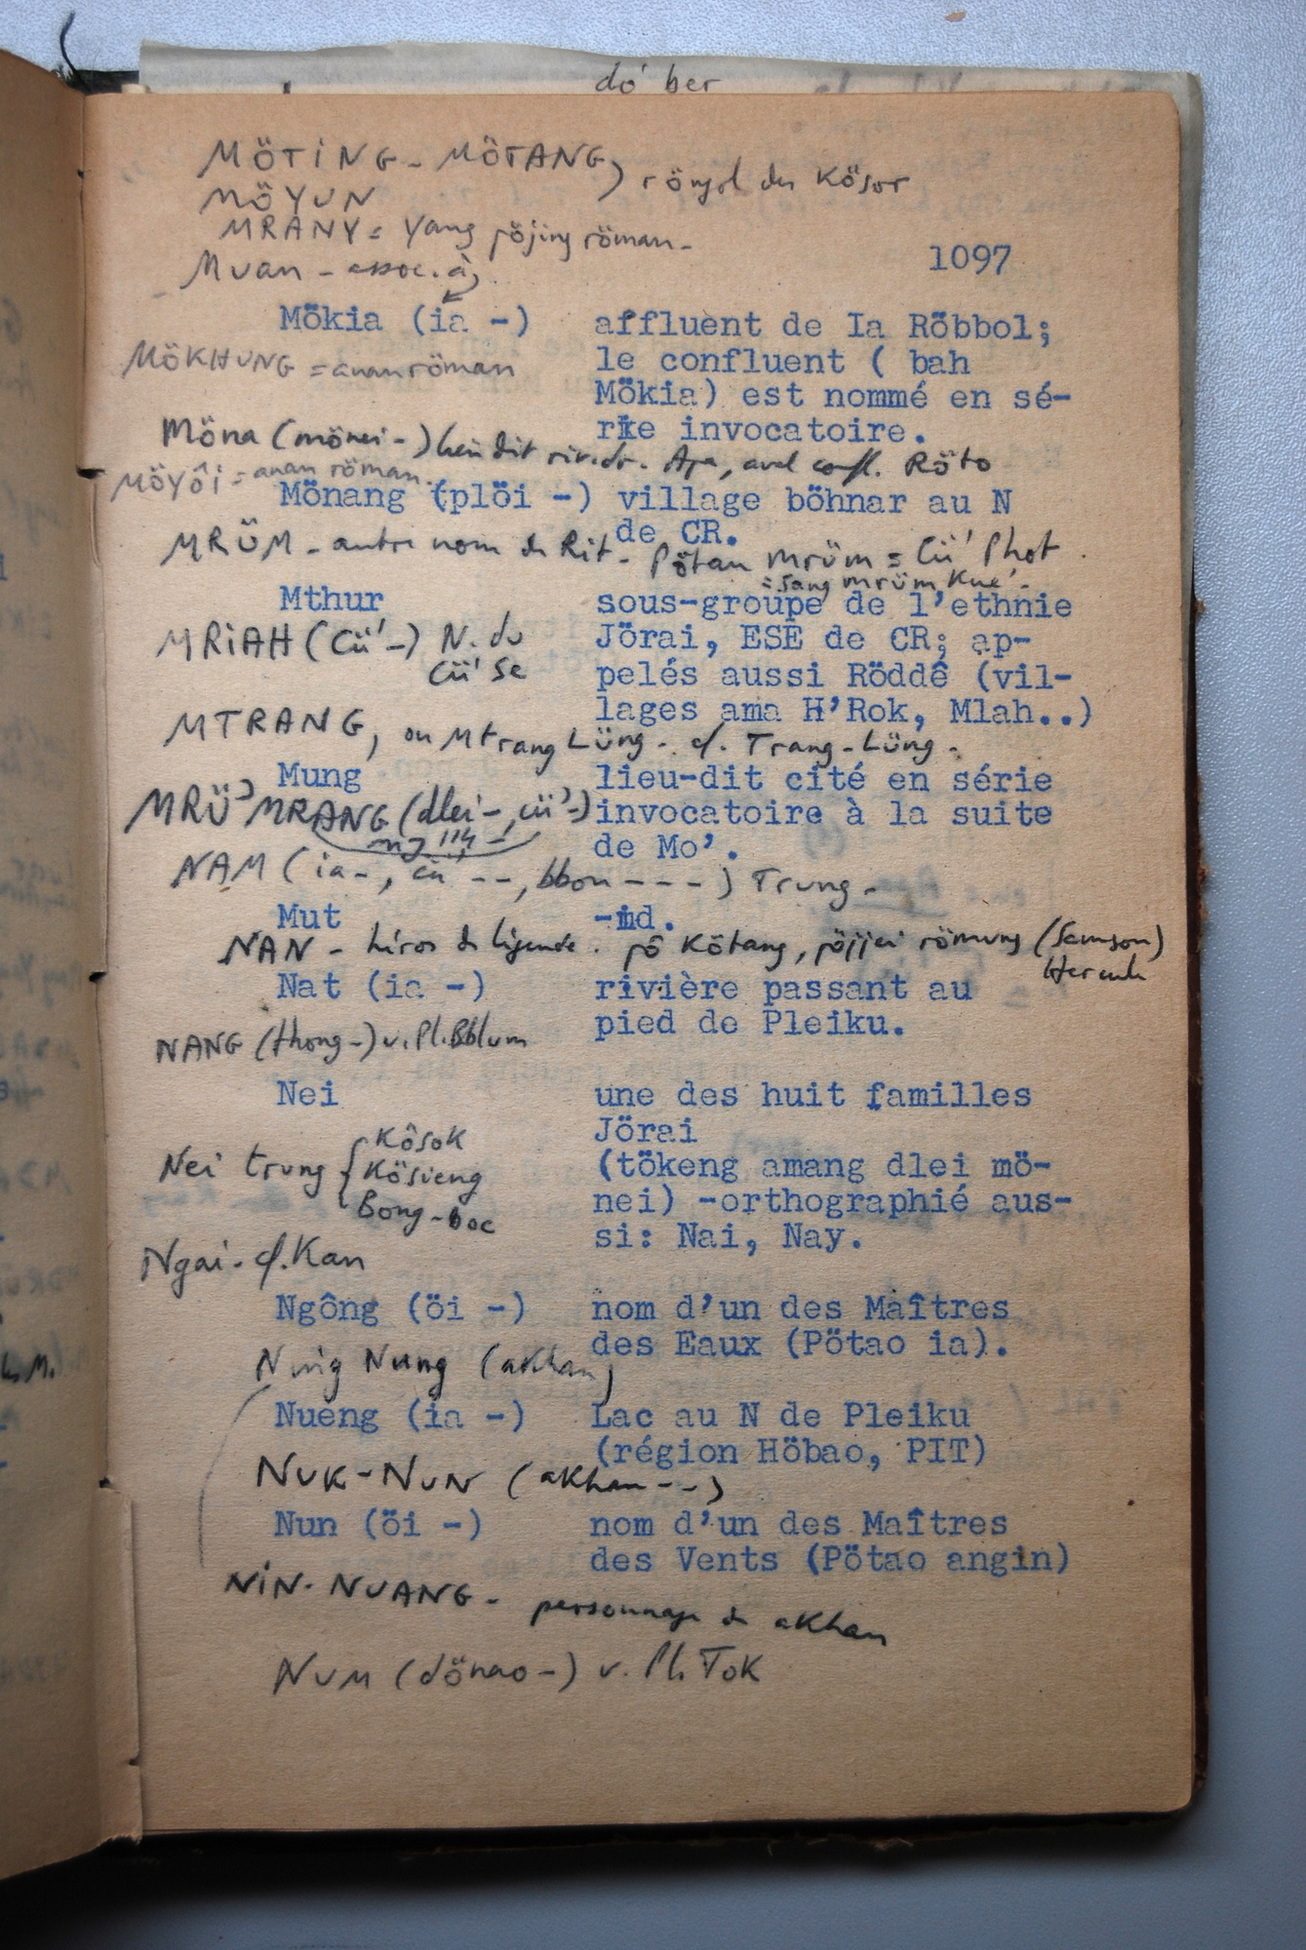 dó ber
MÖTING - MÖTANG
MÖYUN
röngol des Kösor
MRANY = Yang pöjing röman -
Muan - assoc. à
1097
Mökia (ia -) affluent de Ia Röbbol;
MÖKHUNG = anan röman
le confluent ( bah
Mökia) est nommé en sé-
rie invocatoire.
Möna (mönei -) lieu dit riv. dr. Apa, aval confl. Röto
MÖYÔI = anan röman
Mönang (plöi -) village böhnar au N
de CR.
MRÜM - autre nom de Rit - Pötau mrüm = Cü' Phot
= sang mrüm Kue' -
Mthur sous-groupe de l'ethnie
MRIAH (Cü' -) N. du
Cü' Se
Jörai, ESE de CR; ap-
pelés aussi Röddê (vil-
lages ama H'Rok, Mlah..)
MTRANG, ou Mtrang Lüng - cf. Trang-Lüng -
Mung lieu-dit cité en série
MRÜ' MRANG (dlei -, cü' -)
invocatoire à la suite
de Mo'.
NAM (ia -, cü' --, bbon ---) Trung -
Mut -id.
NAN - héros de légende. pô Kötang, pöjjei römung (Samson)
Hercule
Nat (ia -) rivière passant au
pied de Pleiku.
NANG (thong -) v. Pl. Bblum
Nei une des huit familles
Jörai
(tökeng amang dlei mö-
nei) -orthographié aus-
si: Nai, Nay.
Nei trung { Kösok
Kösieng
Bong-boc
Ngai - cf. Kan
Ngông (öi -) nom d'un des Maîtres
des Eaux (Pötao ia).
Ning Nung (akhan)
Nueng (ia -) Lac au N de Pleiku
(région Höbao, PIT)
NUK-NUN (akhan --)
Nun (öi -) nom d'un des Maîtres
des Vents (Pötao angin)
NIN-NUANG - personnage de akhan
NUM (dönao -) v. Pl. Tok